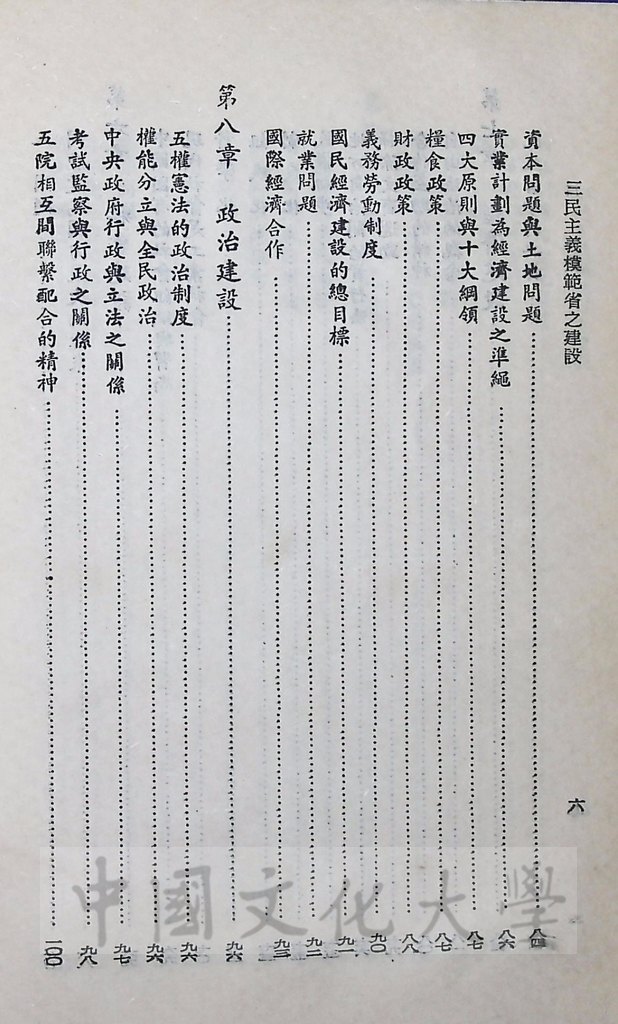 三民主義模範省之建設
六
資本問題與土地問題……八四
實業計劃為經濟建設之準繩……八六
四大原則與十大綱領……八七
糧食政策……八七
財政政策……八八
義務勞動制度……九〇
國民經濟建設的總目標……九一
就業問題……九二
國際經濟合作……九三
第八章　政治建設……九六
五權憲法的政治制度……九六
權能分立與全民政治……九六
中央政府行政與立法之關係……九七
考試監察與行政之關係……九八
五院相互間聯繫配合的精神……一〇〇
中國文化大學